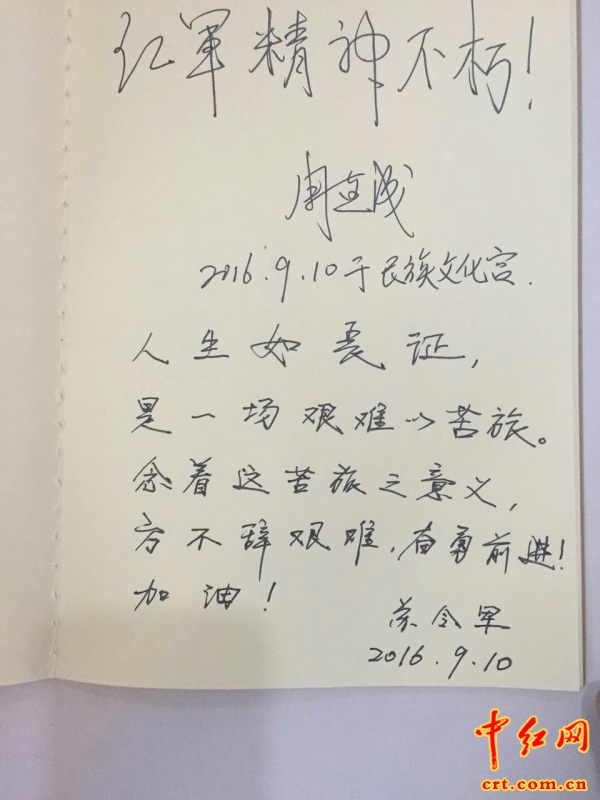 红军精神不朽!
2016.9.10于民族文化宫.
人生如长征,
是一场艰难的苦旅。
念着这苦旅之意义,
方不辞艰难,奋勇前进!
加油!
苏令军
2016.9.10
中红网
crt.com.cn